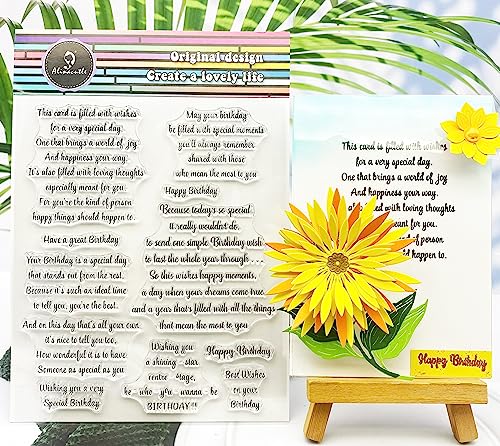 Alinacutle
Original design
Create a lovely life
This card is filled with wishes
for a very special day.
One that brings a world of joy
And happiness your way.
It's also filled with loving thoughts
especially meant for you.
For you're the kind of person
happy things should happen to.
Have a great Birthday
Your Birthday is a special day
that stands out from the rest.
Because it's such an ideal time
to tell you, you're the best.
And on this day that's all your own
it's nice to tell you too,
How wonderful it is to have
Someone as special as you
Wishing you a very
Special Birthday
May your birthday
be filled with special moments
you'll always remember
shared with those
who mean the most to you
Happy Birthday
Because today's so special
It really wouldn't do,
to send one simple Birthday wish
to last the whole year through . . .
So this wishes happy moments,
a day when your dreams come true
and a year that's filled with all the things
that mean the most to you
Wishing you
a shining-star
centre-stage,
be-who-you-wanna-be
BIRTHDAY!!!
Happy Birthday
Best Wishes
on your
Birthday
This card is filled with wishes
for a very special day.
One that brings a world of joy
And happiness your way.
also filled with loving thoughts
meant for you.
kind of person
should happen to.
Happy Birthday